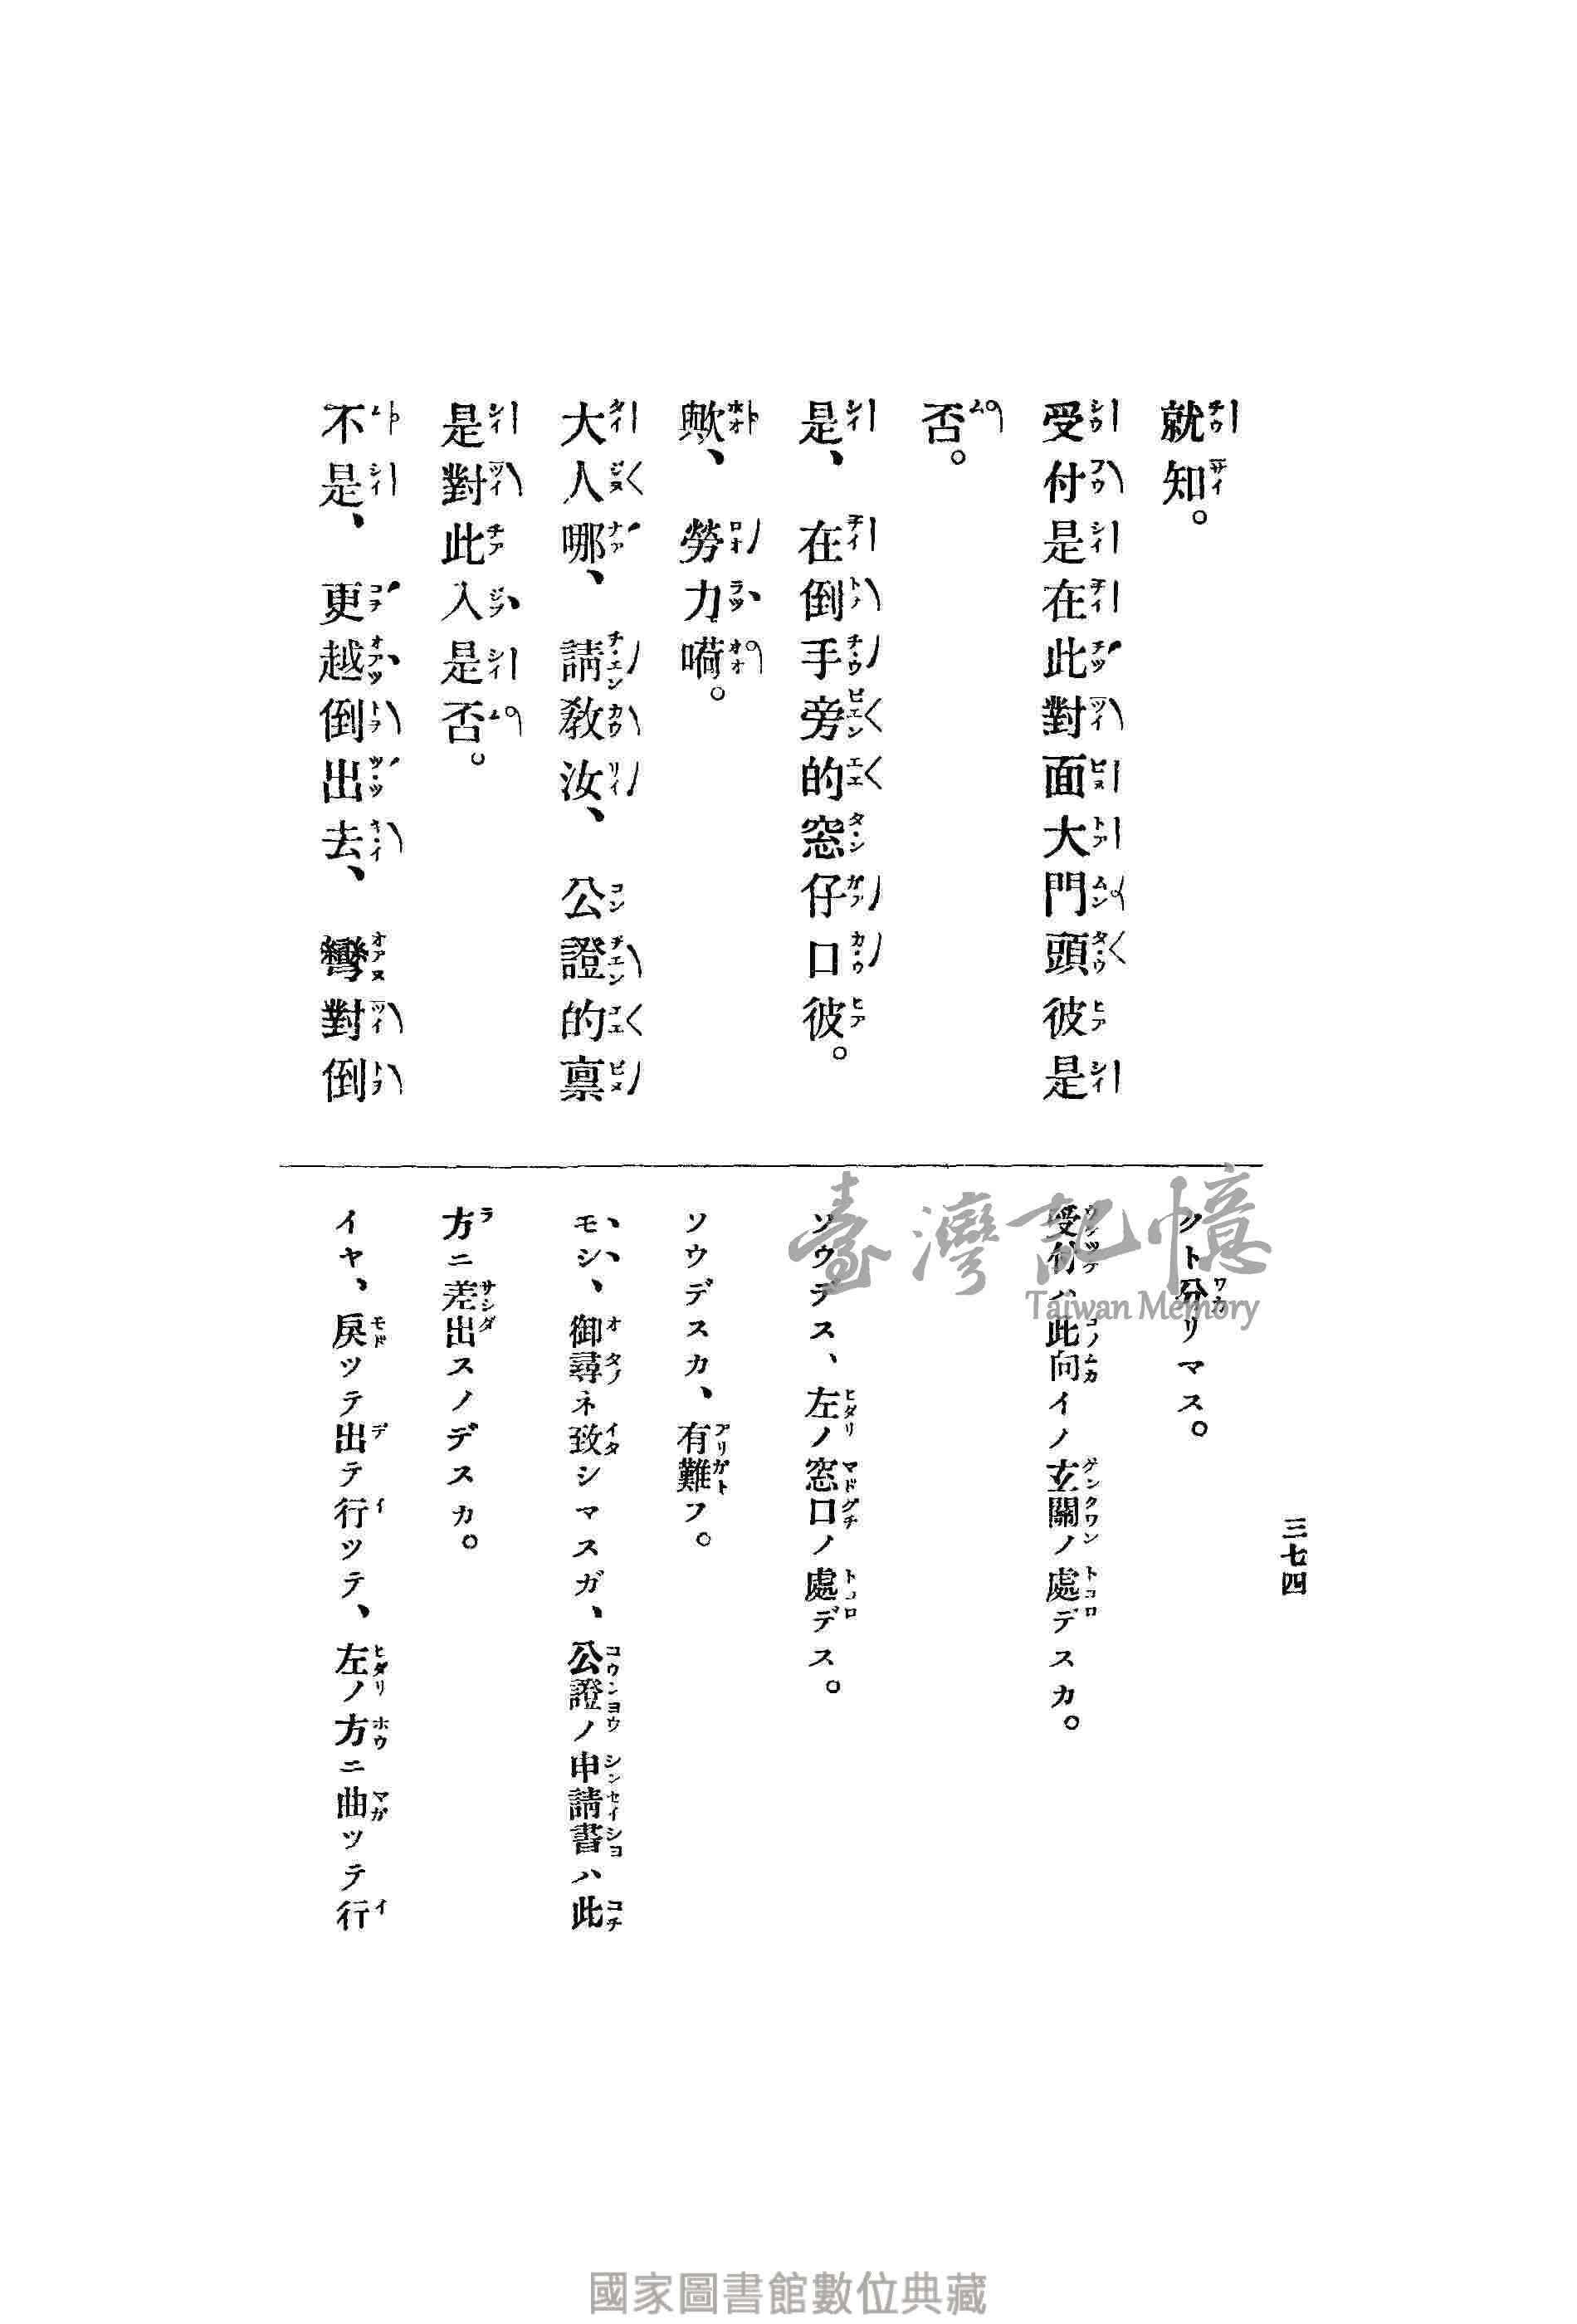 就知。
受付是在此對面大門頭彼是
否。
是、在倒手旁的窓仔口彼。
歟、勞力嗬。
大人哪、請教汝、公證的禀
是對此入是否。
不是、更越倒出去、彎對倒
三七四
クト分リマス。
受付ハ此向イノ玄關ノ處デスカ。
ソウデス、左ノ窓口ノ處デス。
ソウデスカ、有難フ。
モシ、御尋ネ致シマスガ、公證ノ申請書ハ此
方ニ差出スノデスカ。
イヤ、戾ツテ出テ行ツテ、左ノ方ニ曲ツテ行
臺灣記憶
Taiwan Memory
國家圖書館數位典藏